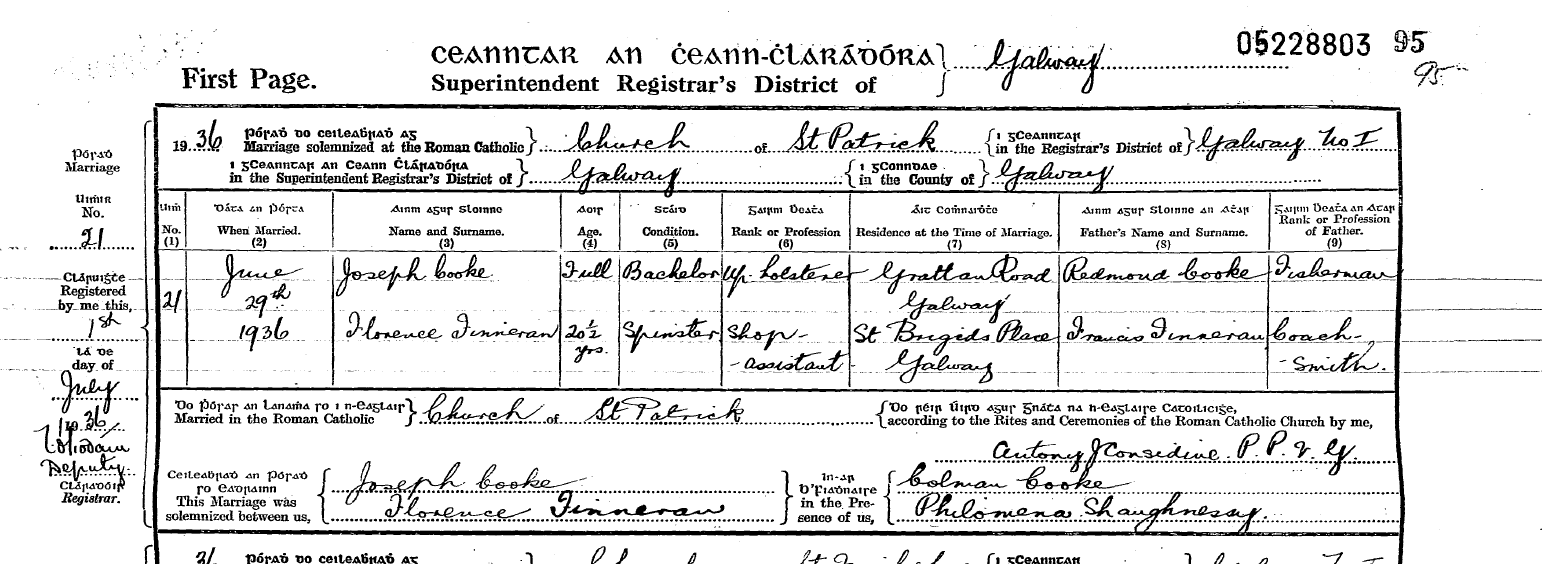 CEANNTAR AN ĊEANN-ĊLÁRAḊÓRA } Galway 05228803 95
First Page. Superintendent Registrar's District of 95
1936 Pósaḋ do ceileaḃraḋ ag Marriage solemnized at the Roman Catholic } Church of St Patrick { i gCeanntar in the Registrar's District of } Galway No I
i gCeanntar an Ceann Ċláraḋóra in the Superintendent Registrar's District of } Galway { i gConndae in the County of } Galway
Pósaḋ
Marriage
Uiṁir
No.
21
Uiṁ No. (1)
Dáta an Pósta When Married. (2)
Ainm agus Sloinne Name and Surname. (3)
Aois Age. (4)
Stáid Condition. (5)
Gairm Ḃeaṫa Rank or Profession (6)
Áit Coṁnaiḋṫe Residence at the Time of Marriage. (7)
Ainm agus Sloinne an Aṫar Father's Name and Surname. (8)
Gairm Ḃeaṫa an Aṫar Rank or Profession of Father. (9)
21 June 29th 1936
Joseph Cooke Full Bachelor Up-holsterer Grattan Road Galway Redmond Cooke Fisherman
Florence Finneran 20½ yrs. Spinster Shop-assistant St Brigids Place Galway Francis Finneran Coach-Smith.
Cláruiġṫe
Registered
by me this,
1st
lá de
day of
July
1936
Deputy
Cláraḋóir
Registrar.
Do Pósaḋ an Lánaṁa so i n-Eaglais Married in the Roman Catholic } Church of St Patrick { Do réir Úird agus Gnáṫa na h-Eaglaise Catoilicíġe, according to the Rites and Ceremonies of the Roman Catholic Church by me,
Antony J Considine P. P. V. G
Ceileaḃraḋ an Pósaḋ so eadrainn This Marriage was solemnized between us, { Joseph Cooke } In-ár ḃ'Fiaḋnaire in the Presence of us, { Colman Cooke
Florence Finneran Philomena Shaughnessy.
36 Pósaḋ do ceileaḃraḋ ag { i gCeanntar